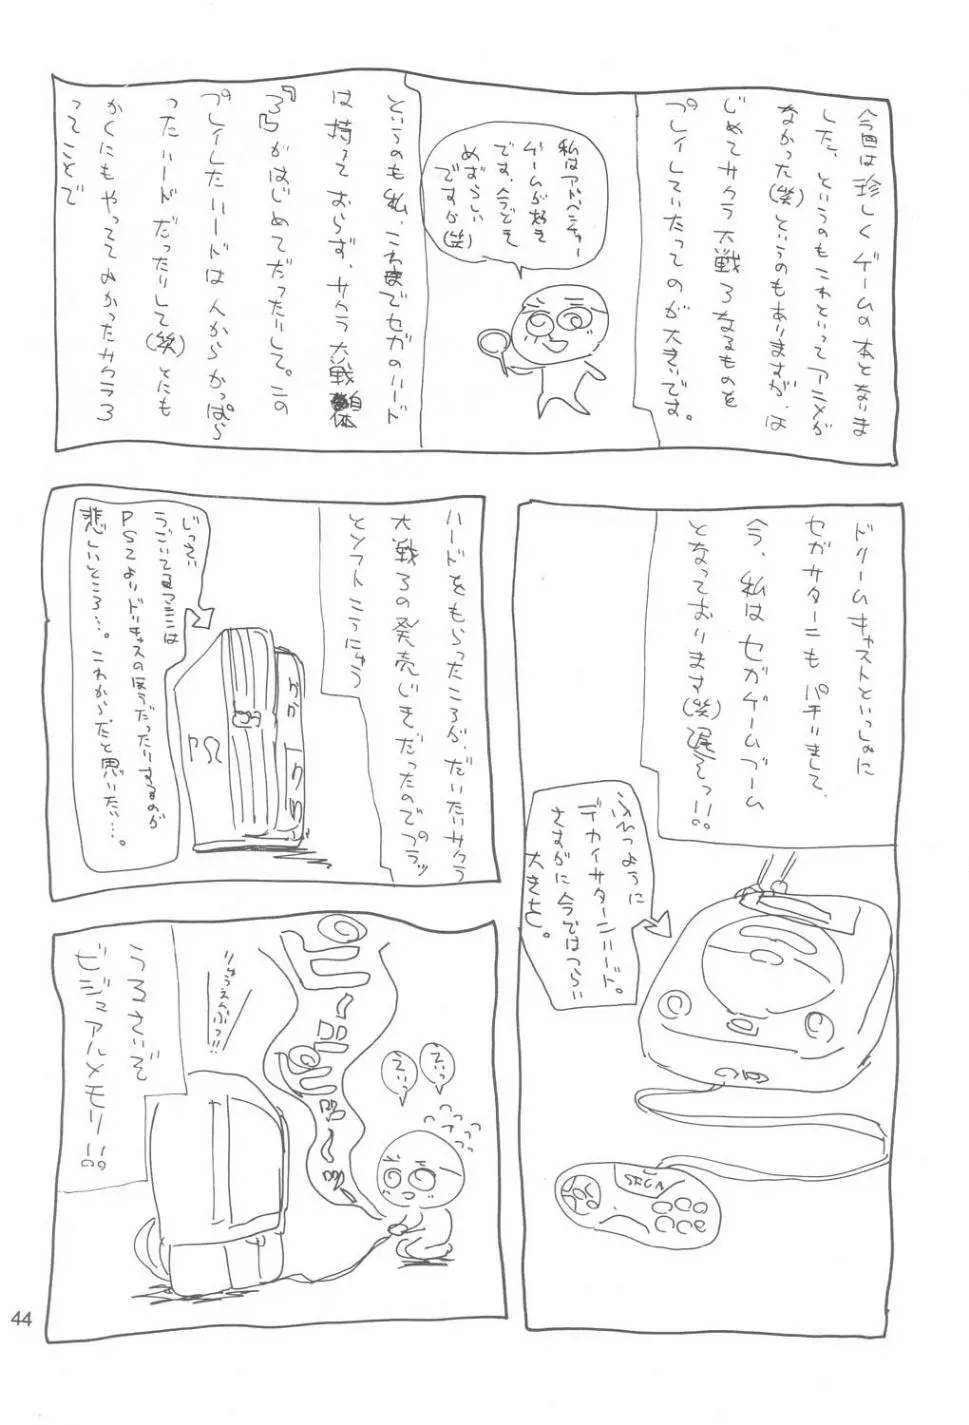 今回は珍しくゲームの本となりま
した。というのもこれといってアニメが
なかった(笑)というのもありますが、は
じめてサクラ大戦3なるものを
プレイしていたってのが大きいです。
私はアドベンチャー
ゲームが好き
です。今どき
めずらしい
ですか(笑)
というのも私、これまでセガのハード
は持っておらず、サクラ大戦自体
『3』がはじめてだったりして。この
プレイしたハードは人からかっぱら
ったハードだったりして(笑)とにも
かくにもやっててよかったサクラ3
ってことで
ドリームキャストといっしょに
セガサターンもパチりまして、
今、私はセガゲームブーム
となっております(笑)遅そっ!!。
ふつように
デカイサターンハード。
さすがに今ではつらい
大きさ。
SEGA
ハードをもらったころが、だいたいサクラ
大戦3の発売じきだったのでプラッ
とソフトこうにゅう
じっさい
うごいてるマシンは
PS2よりドリキャスのほうだったりするのが
悲しいところ…。これからだと思いたい…。
PS2
うるさいぞ
ビジュアルメモリー!!。
ピーーー
えいっ
えいっ
44